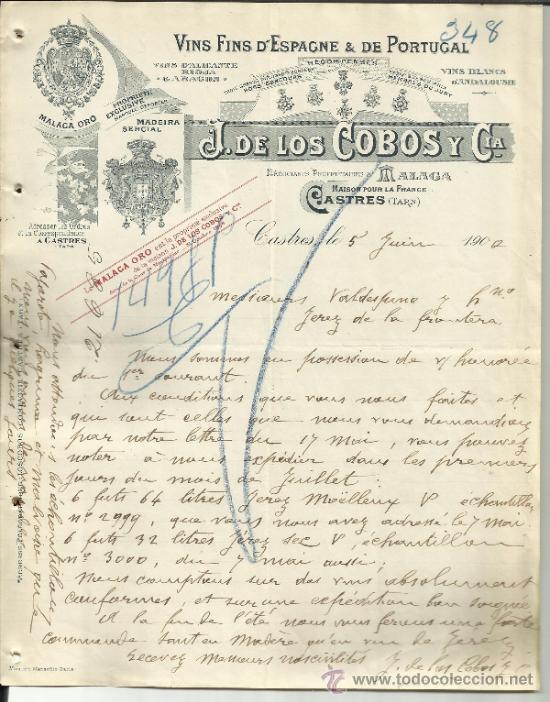 348
VINS FINS D'ESPAGNE & DE PORTUGAL
VINS D'ALICANTE
RIOJA
& ARAGON
RECOMPENSES
HORS CONCOURS
MEMBRE DU JURY
VINS BLANCS
D'ANDALOUSIE
MALAGA ORO
PROPRIÉTÉ
EXCLUSIVE
MADEIRA
SERCIAL
J. DE LOS COBOS Y CIA
NÉGOCIANTS PROPRIÉTAIRES À MALAGA
MAISON POUR LA FRANCE
CASTRES (TARN)
Adresser les Ordres
et la Correspondance
A CASTRES
TARN
Le MALAGA ORO est la propriété exclusive
de la maison J. DE LOS COBOS y Cia
Castres, le 5 Juin 1900
Messieurs Valdespino y hno
Jerez de la frontera
Nous sommes en possession de v/ honorée
du 1er courant.
Aux conditions que vous nous faites et
qui sont celles que nous vous demandions
par notre lettre du 17 Mai, vous pouvez
noter à nous expédier dans les premiers
jours du mois de Juillet:
6 futs 64 litres Jerez Moëlleux V echantillon
nº 2999, que vous nous avez adressé le 7 mai
6 futs 32 litres Jerez sec V, echantillon
nº 3000, du 7 mai aussi;
Nous comptons sur des vins absolument
conformes, et sur une expédition bien soignée
A la fin de l'été nous vous ferons une forte
commande tant en Madère qu'en vin de Jerez
Recevez Messieurs nos civilités J. de los Cobos y Cª
Nous attendons les echantillons
il y a quelques jours
todocoleccion.net